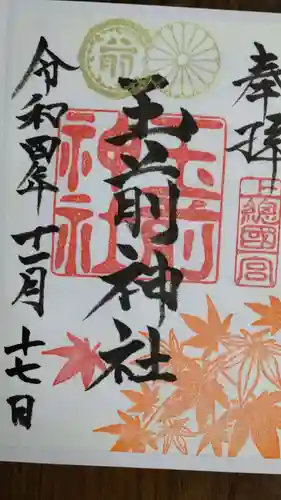 奉拝
上總國一宮
玉前神社
玉前神社
令和四年十一月十七日